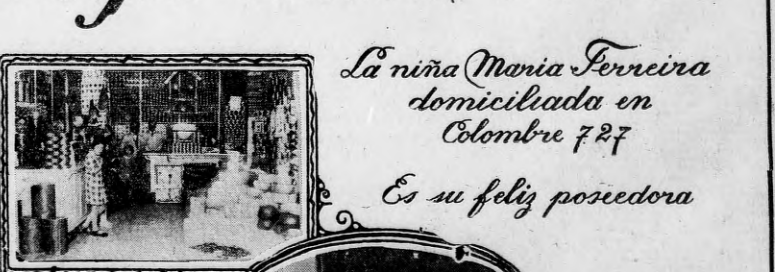 La niña Maria Ferreira
domiciliada en
Colombre 727
Es su feliz poseedora